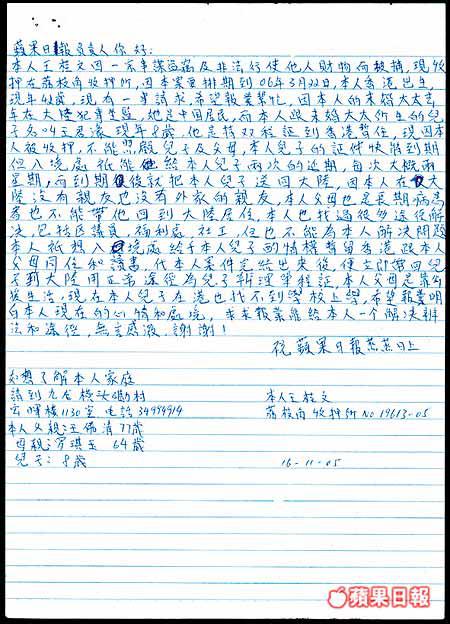 蘋果日報負責人你好:
本人王桂文因一宗爭謀盜竊及非法行使他人財物而被捕,現收
押在荔枝角收押所,因本案要排期到06年3月22日,本人香港出生,
現年 歲,現有一事請求,希望報業幫忙,因本人的未婚太太去
年在大陸犯事坐監,她是中國居民,而本人跟未婚太太所生的兒
子名叫王君濠現年8歲,他是持双程証到香港暫住,現因本人
被收押,不能照顧兒子及父母,本人兒子的証件快將到期
但入境處祇能 給本人兒子兩次的延期,每次大概兩
星期,而到期後就把本人兒子送回大陸,因本人在大
陸沒有親友也沒有外家的親友,本人父母也是長期病患
者也不能帶他回到大陸居住,本人也找過很多途徑解
決,包括區議員,福利處,社工,但也不能為本人解決問題
本人祇想入境處給予本人兒子酌情權暫留香港跟本人
父母同住和讀書,代本人案件完結出來後便立即帶回兒
子到大陸用正常途徑為兒子辦理單程証,本人父母是靠
援生活,現在本人兒子在港也找不到學校上學,希望報業明
白本人現在的心情和處境,求求報業能給本人一個解決辦
法和途徑,無言感激,謝謝!
祝蘋果日報蒸蒸日上
如想了解本人家庭
請到九龍橫頭磡村
宏暉樓1130室 電話34994914
本人父親:王佛清77歲
母親:羅琪玉 64歲
兒子:8歲
本人王桂文
荔枝角收押所No 19613-05
16-11-05
蘋果日報